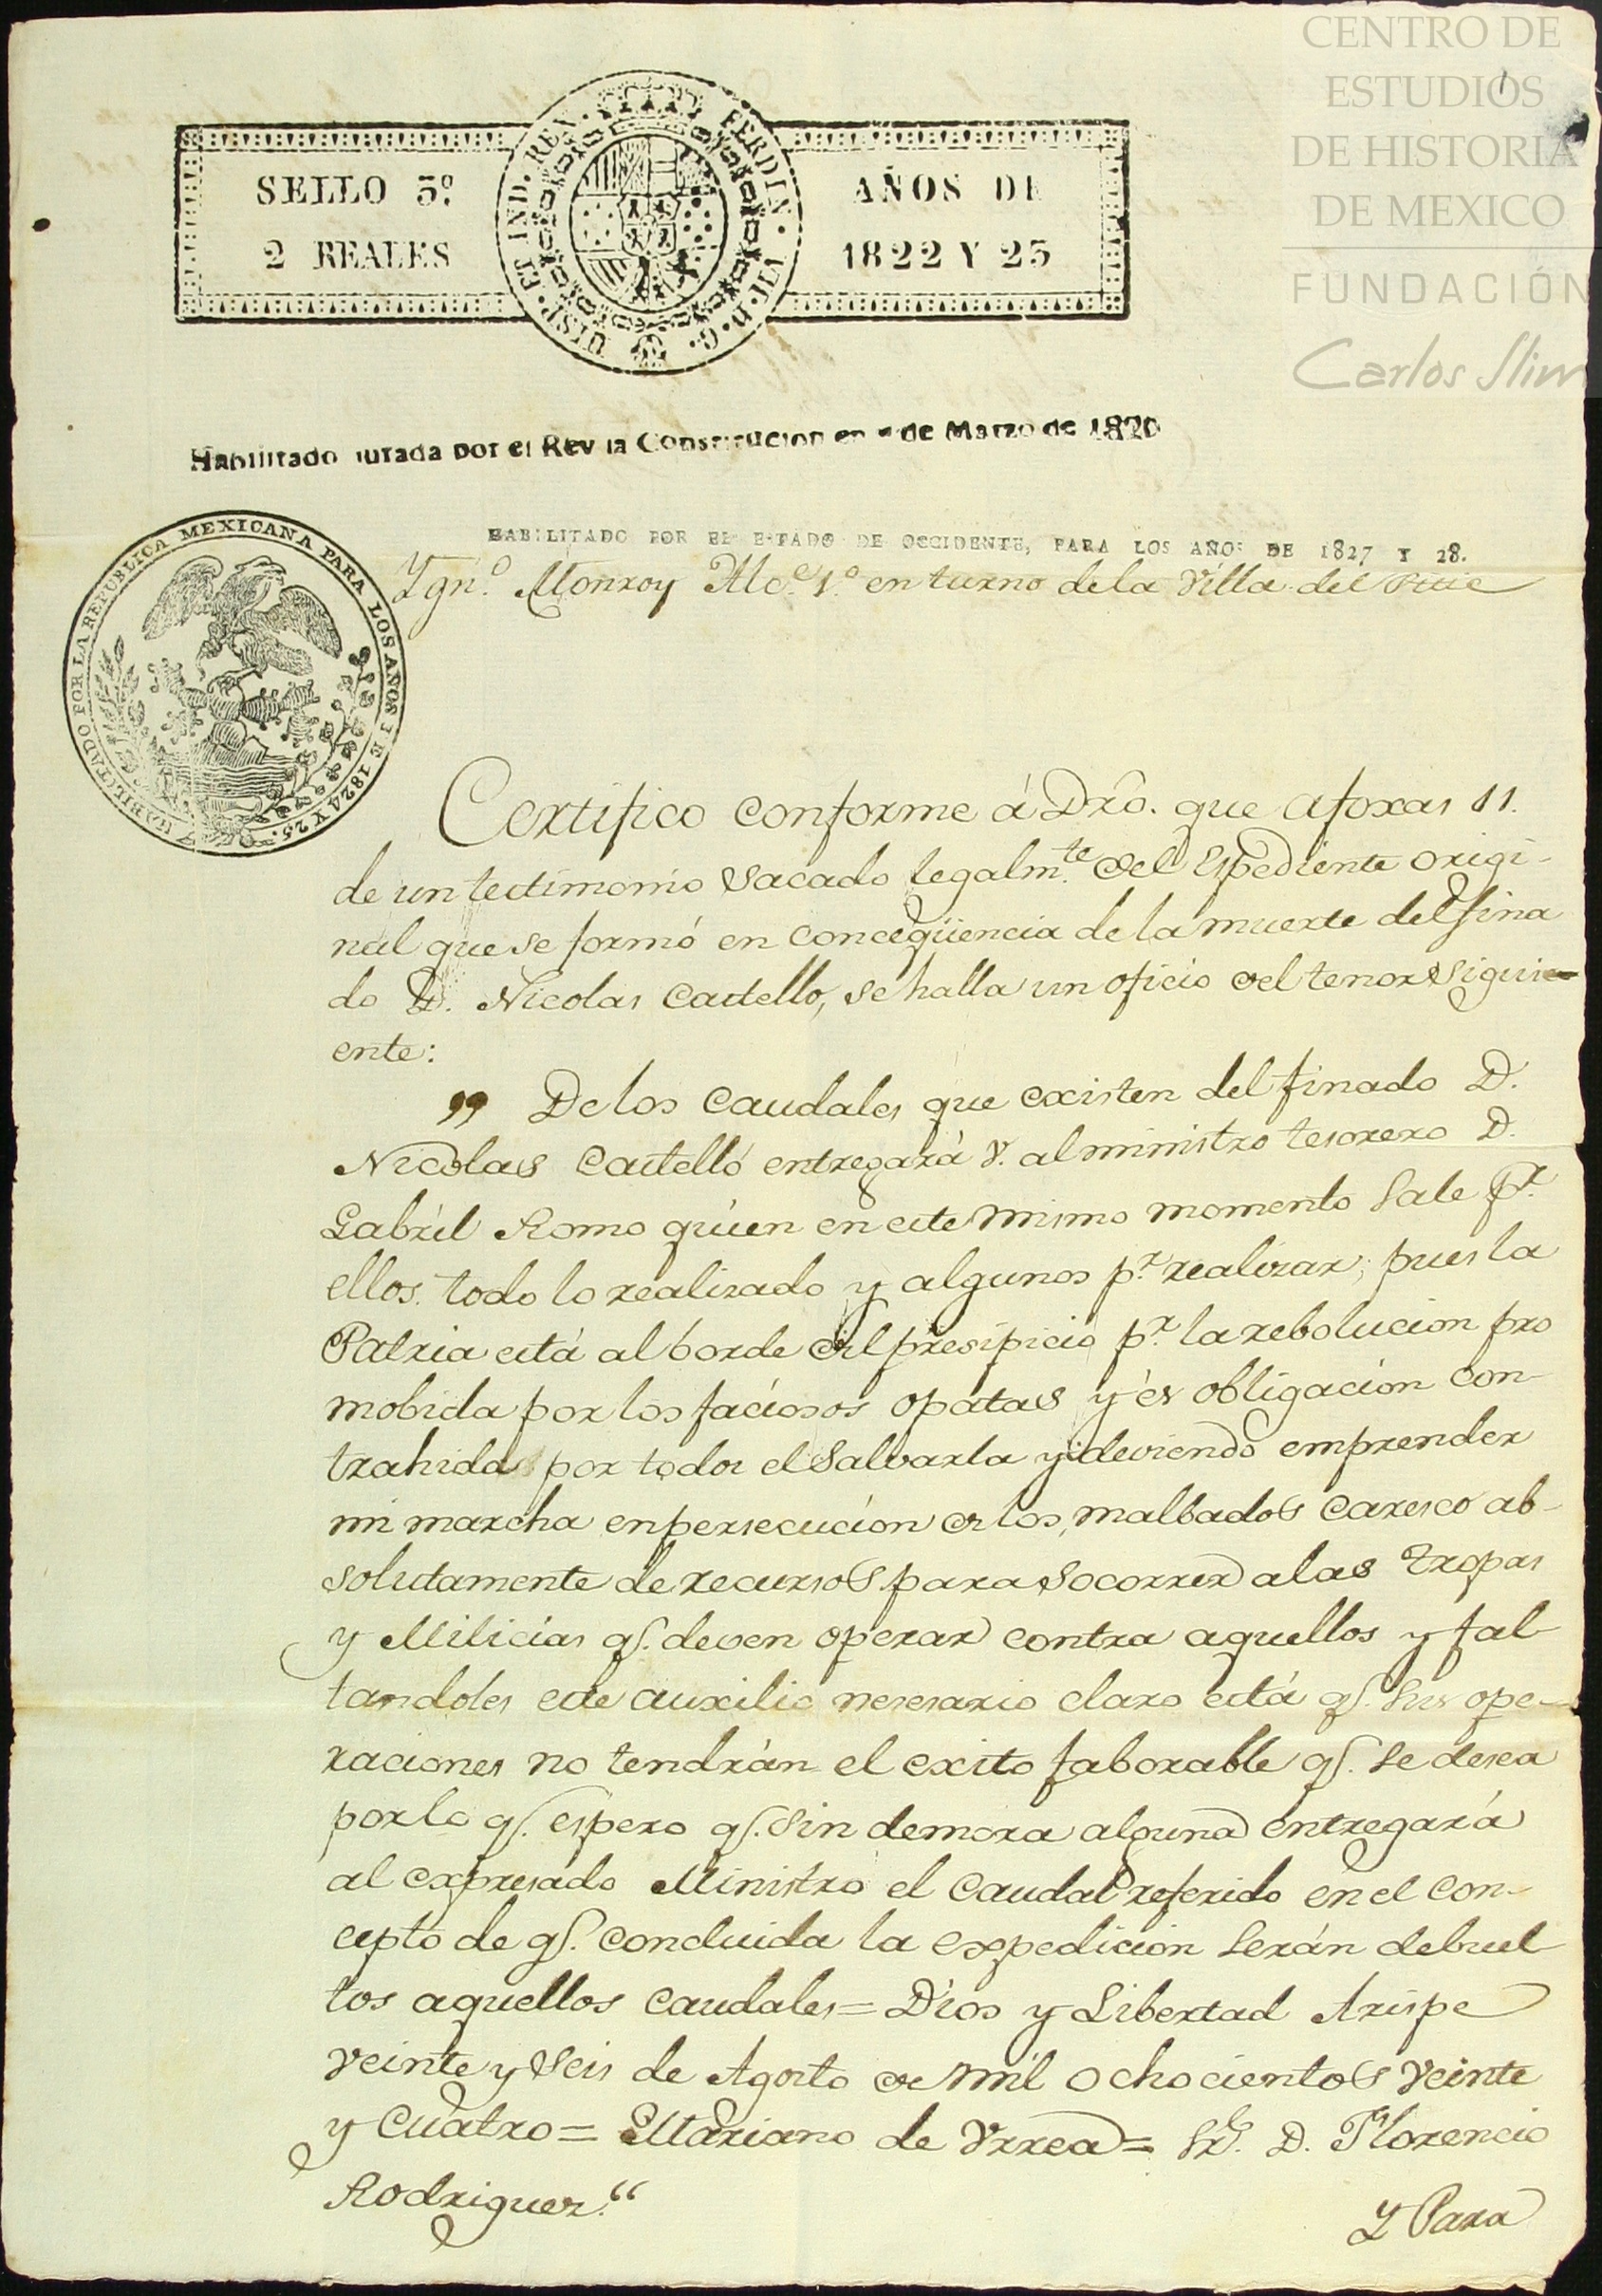 CENTRO DE
ESTUDIOS
DE HISTORIA
DE MEXICO
FUNDACIÓN
Carlos Slim
SELLO 3º
2 REALES
HISP. ET IND. REX. FERDIN. VII. D. G.
AÑOS DE
1822 Y 23
Habilitado jurada por el Rey la Constitucion en 9 de Marzo de 1820
HABILITADO POR EL ESTADO DE OCCIDENTE, PARA LOS AÑOS DE 1827 Y 28.
HABILITADO POR LA REPUBLICA MEXICANA PARA LOS AÑOS DE 1824 Y 25.
Ygn.º Monroy Alc.e 1.º en turno de la Villa del Pitic
Certifico conforme á Dro. que afoxas 11.
de un testimonio sacado legalm.te del Espediente origi-
nal que se formó en conceqüencia de la muerte del fina
do D. Nicolas Castello, se halla un oficio del tenor sigui-
ente:
„ De los caudales que existen del finado D.
Nicolas Castelló entregará V. al ministro tesorero D.
Gabriel Romo quien en este mismo momento sale p.r
ellos. todo lo realisado y algunos p.r realizar; pues la
Patria está al borde del presipicio p.r la rebolucion pro
mobida por los faciosos opatas y és obligacion con-
trahida por todos el salvarla y deviendo emprender
mi marcha en persecucion de los malbados caresco ab-
solutamente de recursos para socorrer a las Tropas
y Milicias q.e deven operar contra aquellos y fal-
tandoles este auxilio nesesario claro está q.e sus ope-
raciones no tendrán el exito faborable q.e se desea
por lo q.e espero q.e sin demora alguna entregará
al expresado Ministro el caudal referido en el con-
cepto de q.e concluida la expedicion serán debuel
tos aquellos caudales = Dios y Libertad Arispe
veinte y seis de Agosto de mil ochocientos veinte
y Cuatro = Mariano de Urrea = Sr. D. Florencio
Rodriguez.“
Y Para